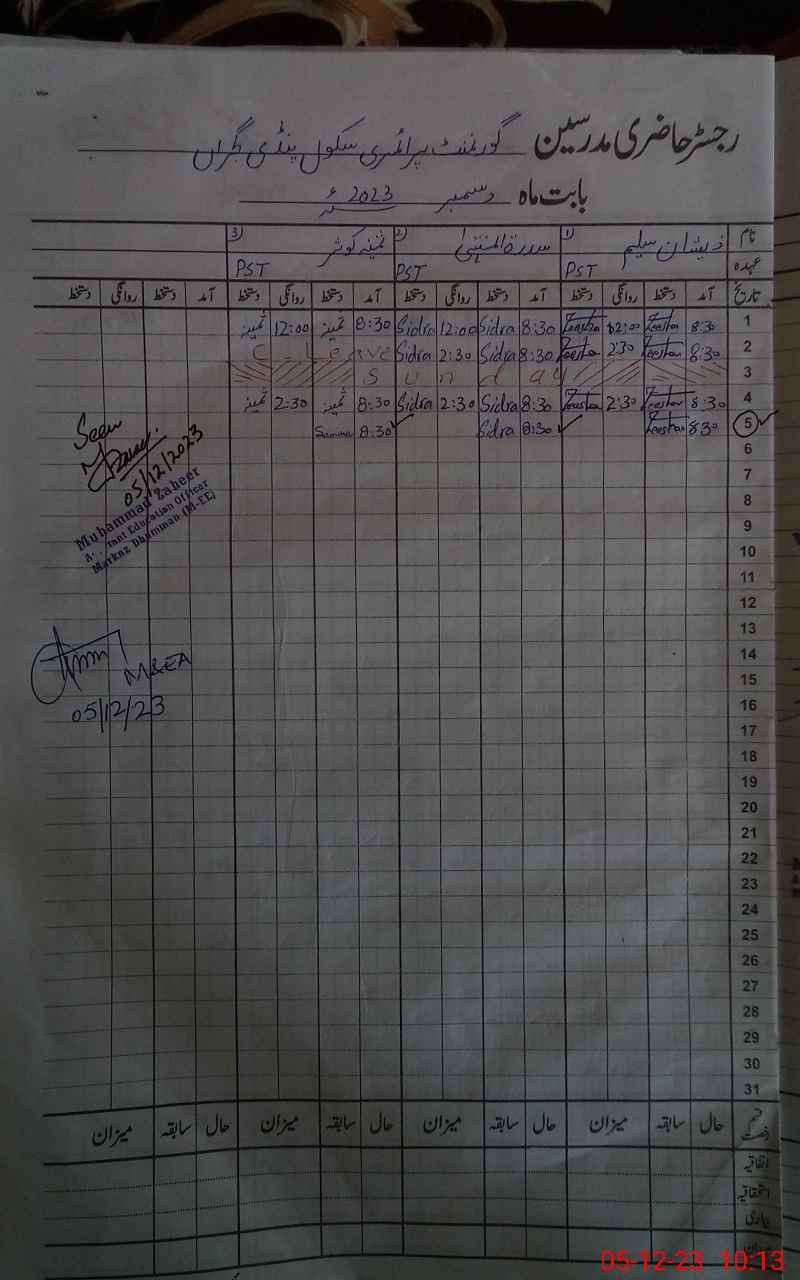 رجسٹر حاضری مدرسین گورنمنٹ پرائمری سکول پنڈی گجراں
بابت ماہ دسمبر 2023ء
نام (1) ذیشان سلیم (2) سدرۃ المنتہیٰ (3) ثمینہ کوثر
عہدہ PST PST PST
تاریخ آمد دستخط روانگی دستخط آمد دستخط روانگی دستخط آمد دستخط روانگی دستخط آمد دستخط روانگی دستخط
1 8:30 Zeeshan 12:00 Zeeshan 8:30 Sidra 12:00 Sidra 8:30 ثمینہ 12:00 ثمینہ
2 8:30 Zeeshan 2:30 Zeeshan 8:30 Sidra 2:30 Sidra C-Leave
3 Sunday
4 8:30 Zeeshan 2:30 Zeeshan 8:30 Sidra 2:30 Sidra 8:30 ثمینہ 2:30 ثمینہ
5 8:30 Zeeshan 8:30 Sidra 8:30
6
7
8
9
10
11
12
13
14
15
16
17
18
19
20
21
22
23
24
25
26
27
28
29
30
31
Seen
05/12/2023
Muhammad Zaheer
Education Officer
Markaz Dhumman (M-EE)
M&EA
05/12/23
قسم رخصت حال سابقہ میزان حال سابقہ میزان حال سابقہ میزان حال سابقہ میزان
اتفاقیہ
استحقاقیہ
بیماری
میزان
05-12-23 10:13